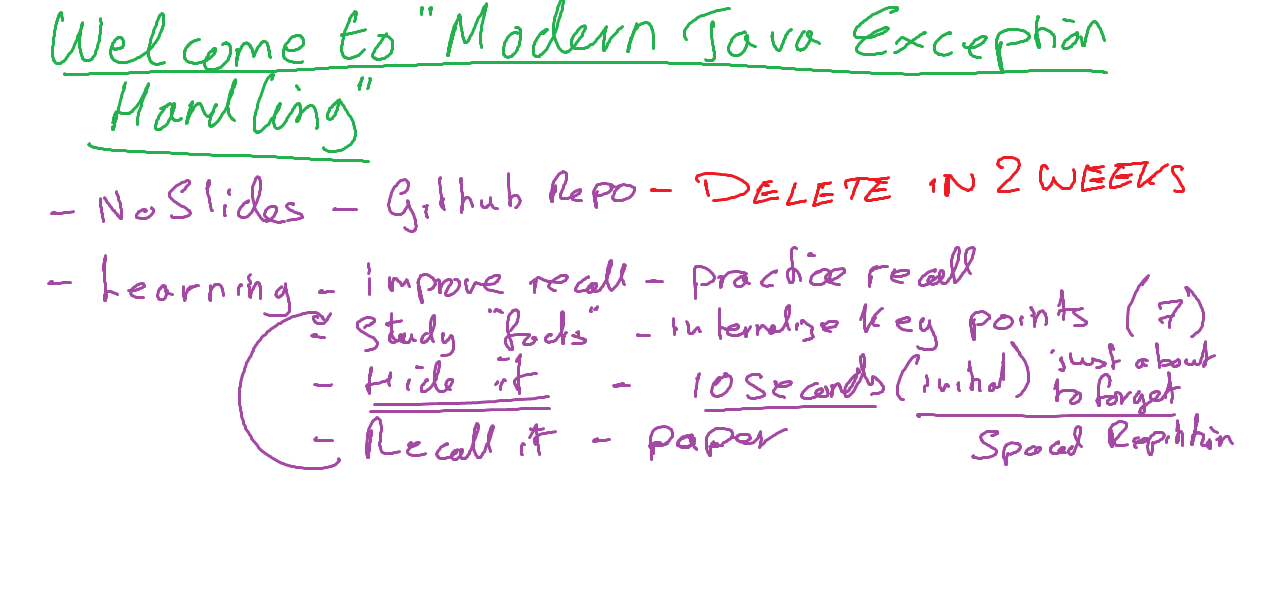 Welcome to "Modern Java Exception
Handling"
- No Slides - Github Repo - DELETE IN 2 WEEKS
- Learning - improve recall - practice recall
- Study "facts" - internalize key points (7)
- Hide it - 10 seconds (initial) just about
to forget
- Recall it - paper Spaced Repitition